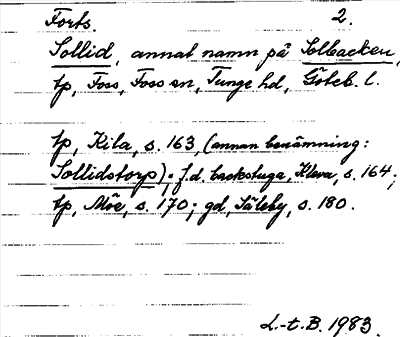 Forts. 2.
Sollid, annat namn på Solbacken,
tp, Foss, Foss sn, Tunge hd, Göteb. l.
tp, Kila, s. 163, (annan benämning:
Sollidstorp); f.d. backstuga, Kleva, s. 164;
tp, Möe, s. 170; gd, Säleby, s. 180.
L.-t.B. 1983.